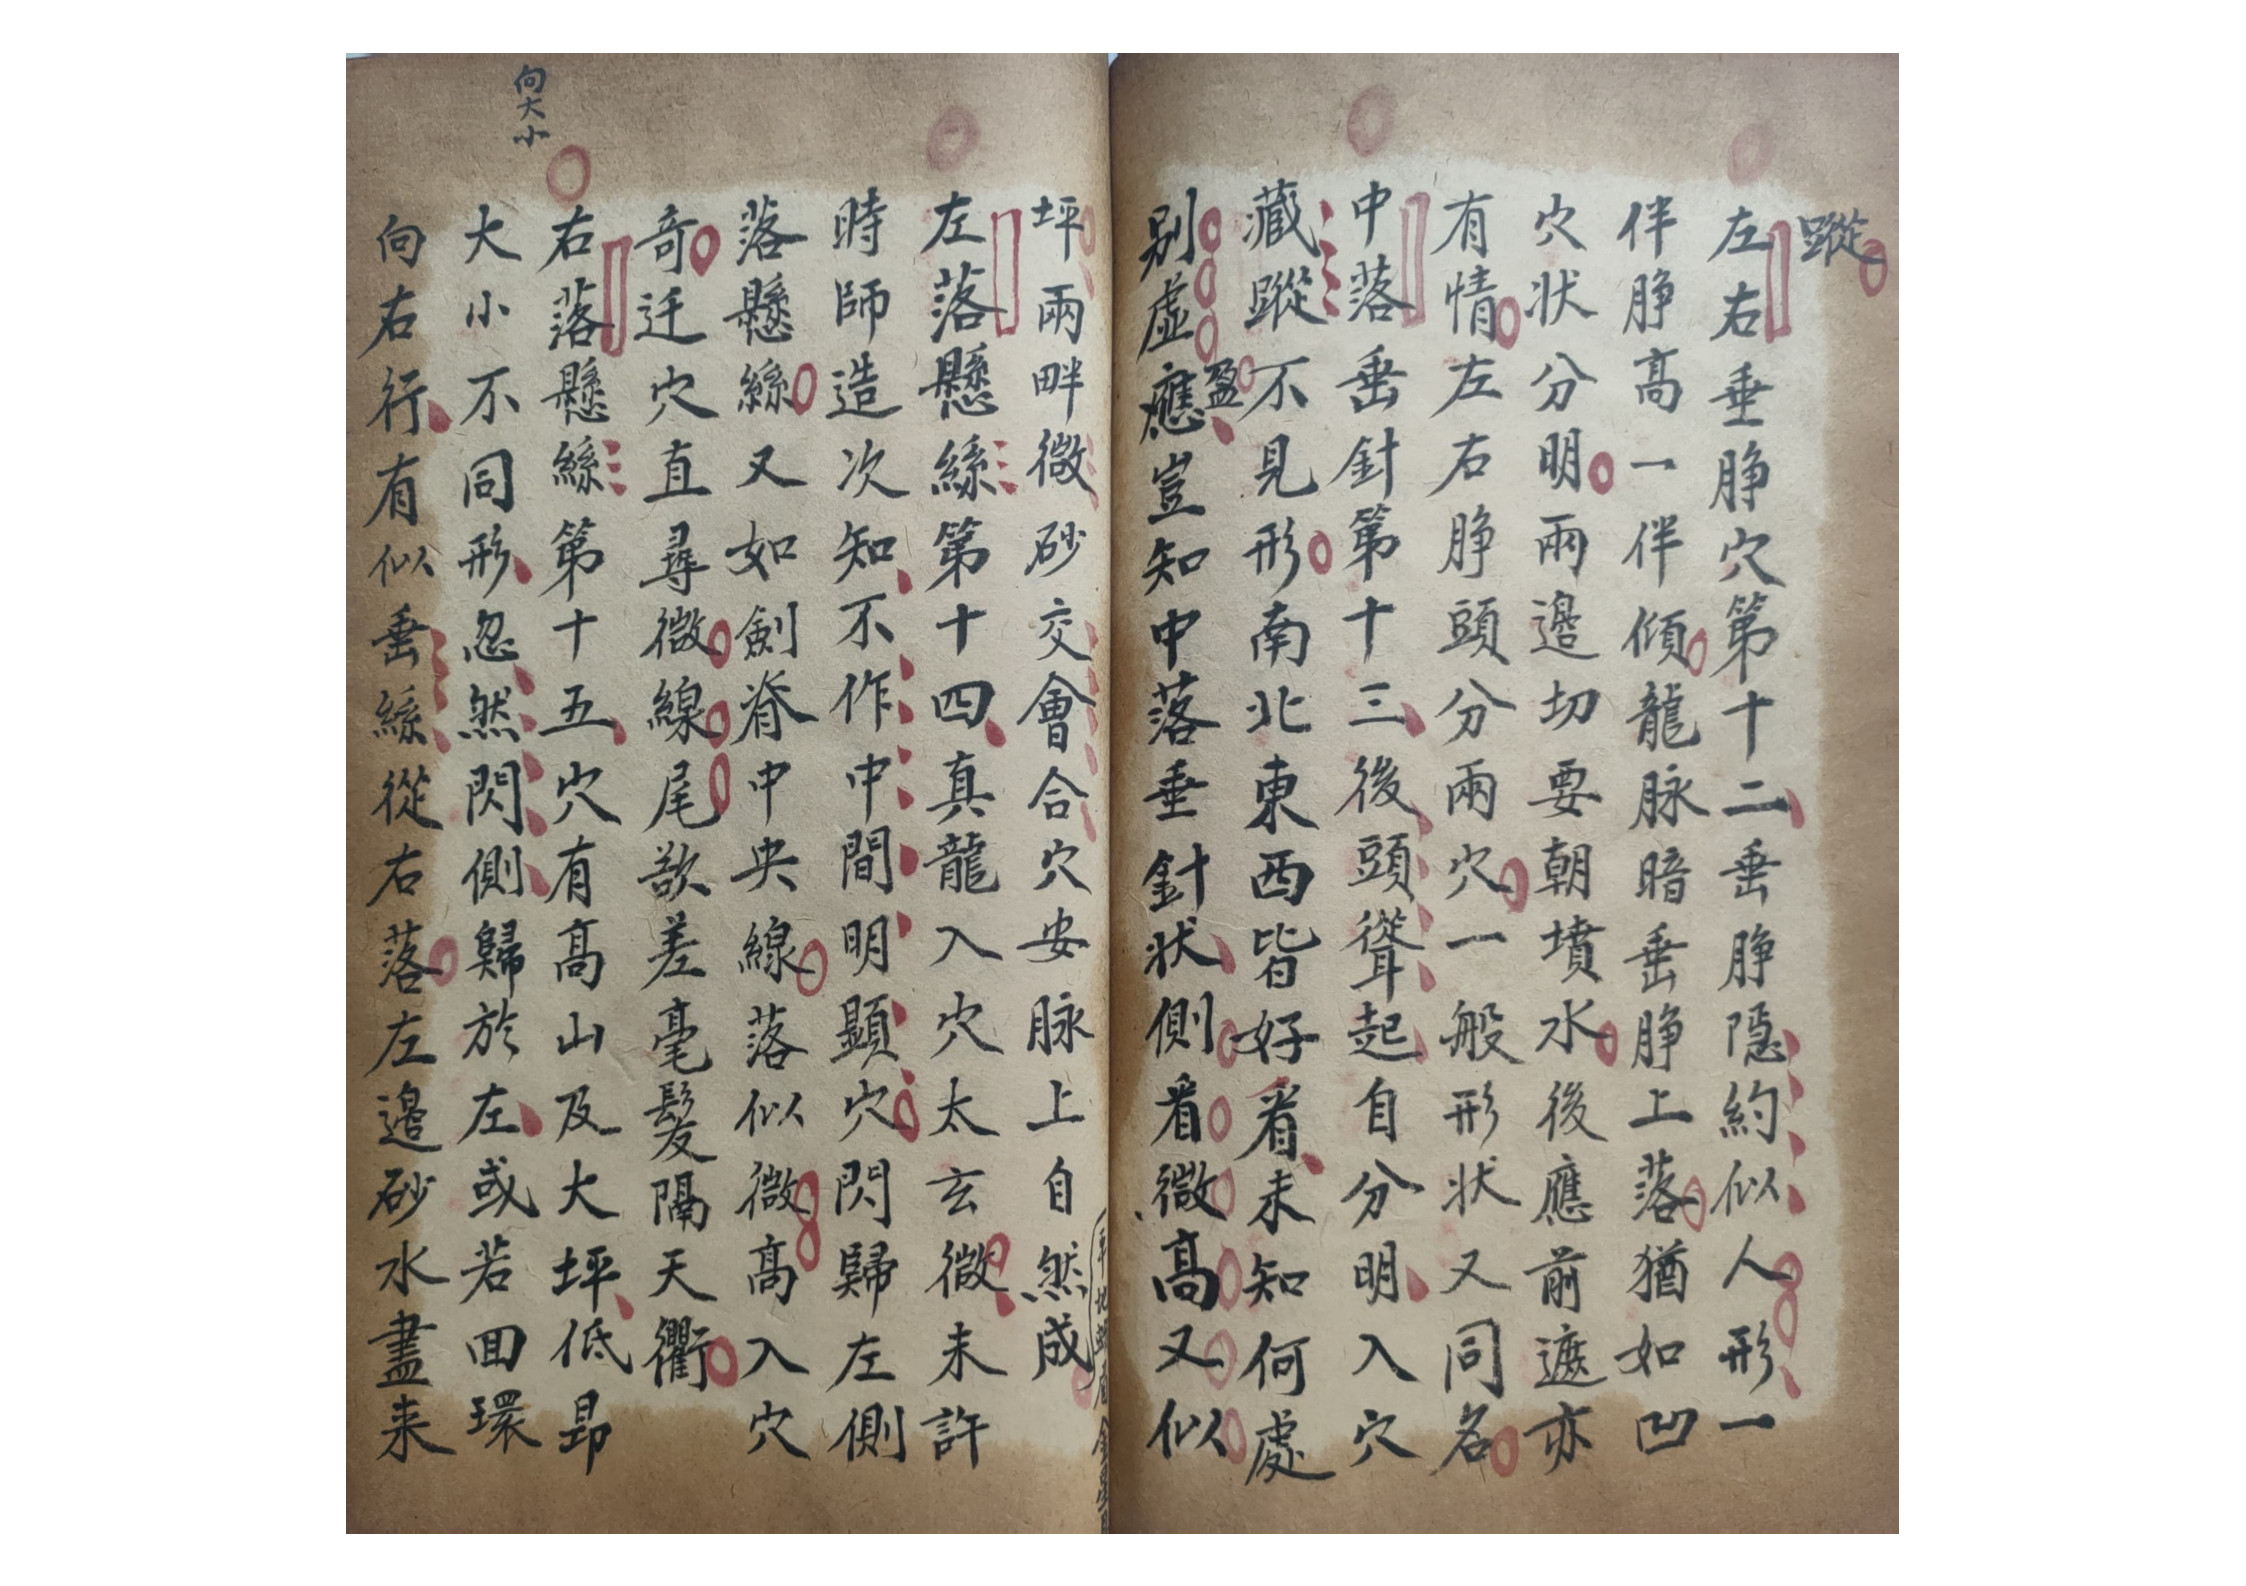 蹤
左右垂脝穴第十二垂脝隱約似人形一
伴脝高一伴傾龍脉暗垂脝上落猶如凹
穴状分明兩邉切要朝墳水後應前遮亦
有情左右脝頭分兩穴一般形状又同名
中落垂針第十三後頭聳起自分明入穴
藏蹤不見形南北東西皆好看未知何處
盈
别虚應豈知中落垂針状側看微高又似
坪兩畔微砂交會合穴安脉上自然成
左落懸絲第十四真龍入穴太玄微未許
時師造次知不作中間明顯穴閃歸左側
落懸絲又如劍脊中央線落似微高入穴
奇迁穴直尋微線尾欲差毫髮隔天衢
右落懸絲第十五穴有高山及大坪低昻
向大小
大小不同形忽然閃側歸於左或若回環
向右行有似垂絲從右落左邉砂水盡来